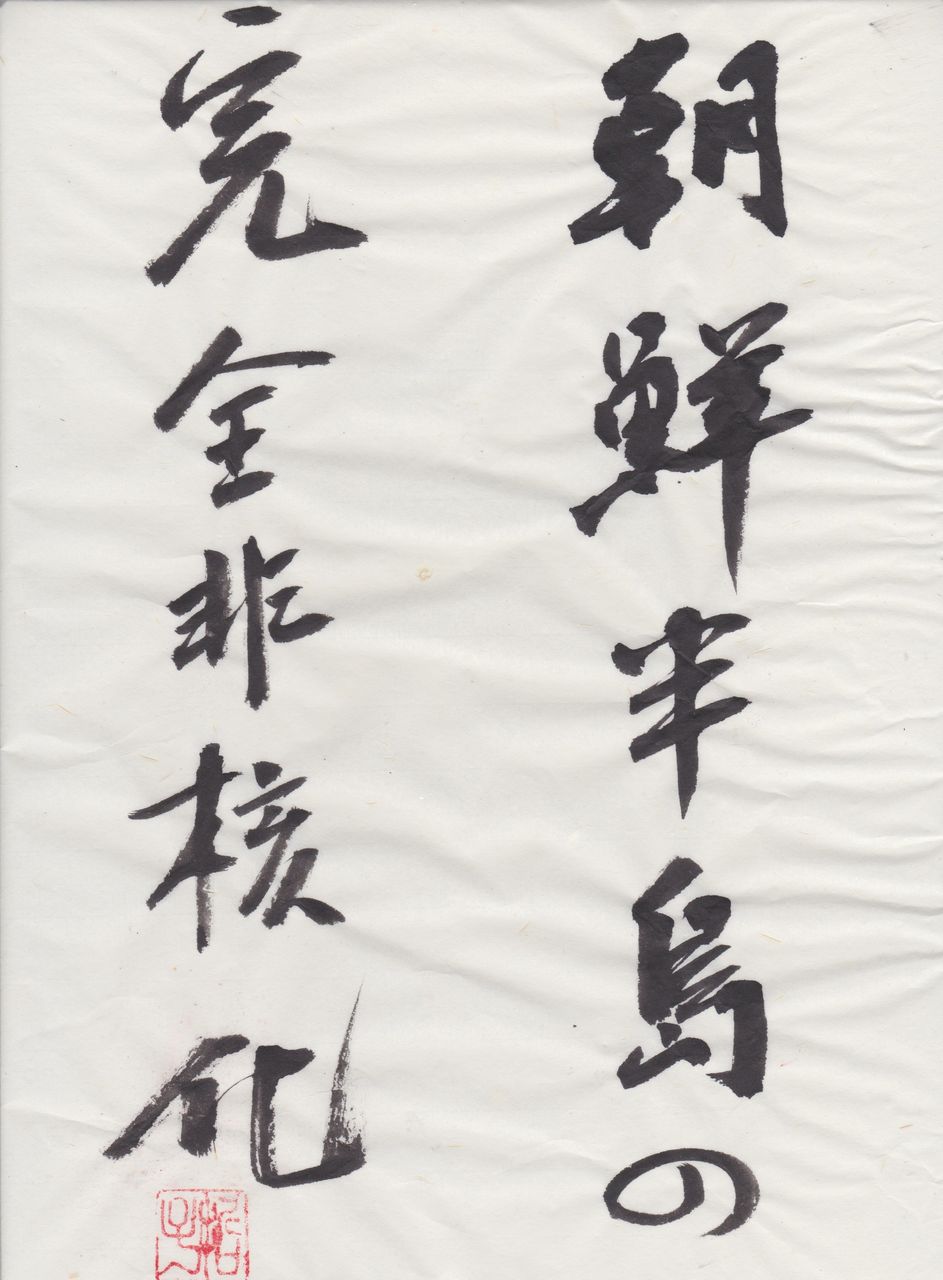 朝鮮半島の
完全非核化